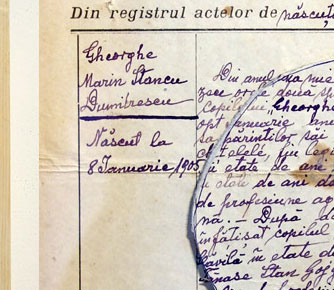 Din registrul actelor de născuț
Gheorghe
Marin Stancu
Dumitrescu
Născut la
8 Ianuarie 1905
Din anul una mi
zece ore două sp
Copilului Gheorghe
opt ianuarie anu
sa părinților săi
fiu leg
etate de ani
etate de ani d
de profesiune ag
na. – După d
înfățisat copilul
în etate d
Tanase Stan